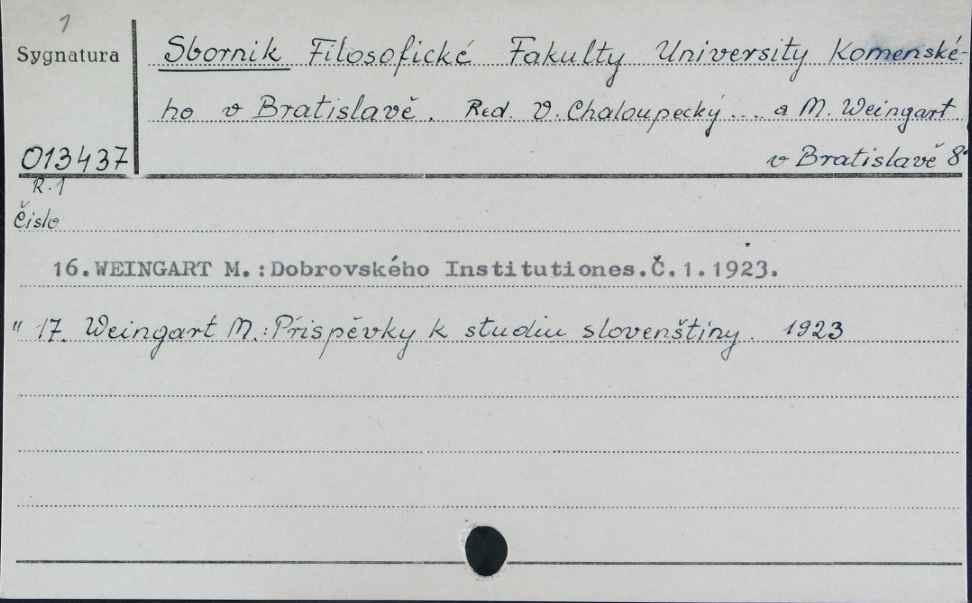 1
Sygnatura
Sbornik Filosofické Fakulty University Komenské-
ho v Bratislavě. Red. V. Chaloupecký ... a M. Weingart
013437
v Bratislavě 8°
R.1
Číslo
16.WEINGART M.:Dobrovského Institutiones.Č.1.1923.
" 17. Weingart M.:Přispěvky k studiu slovenštiny. 1923